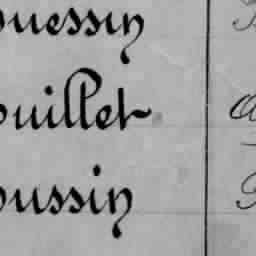 ouessin
ouillet
oussin